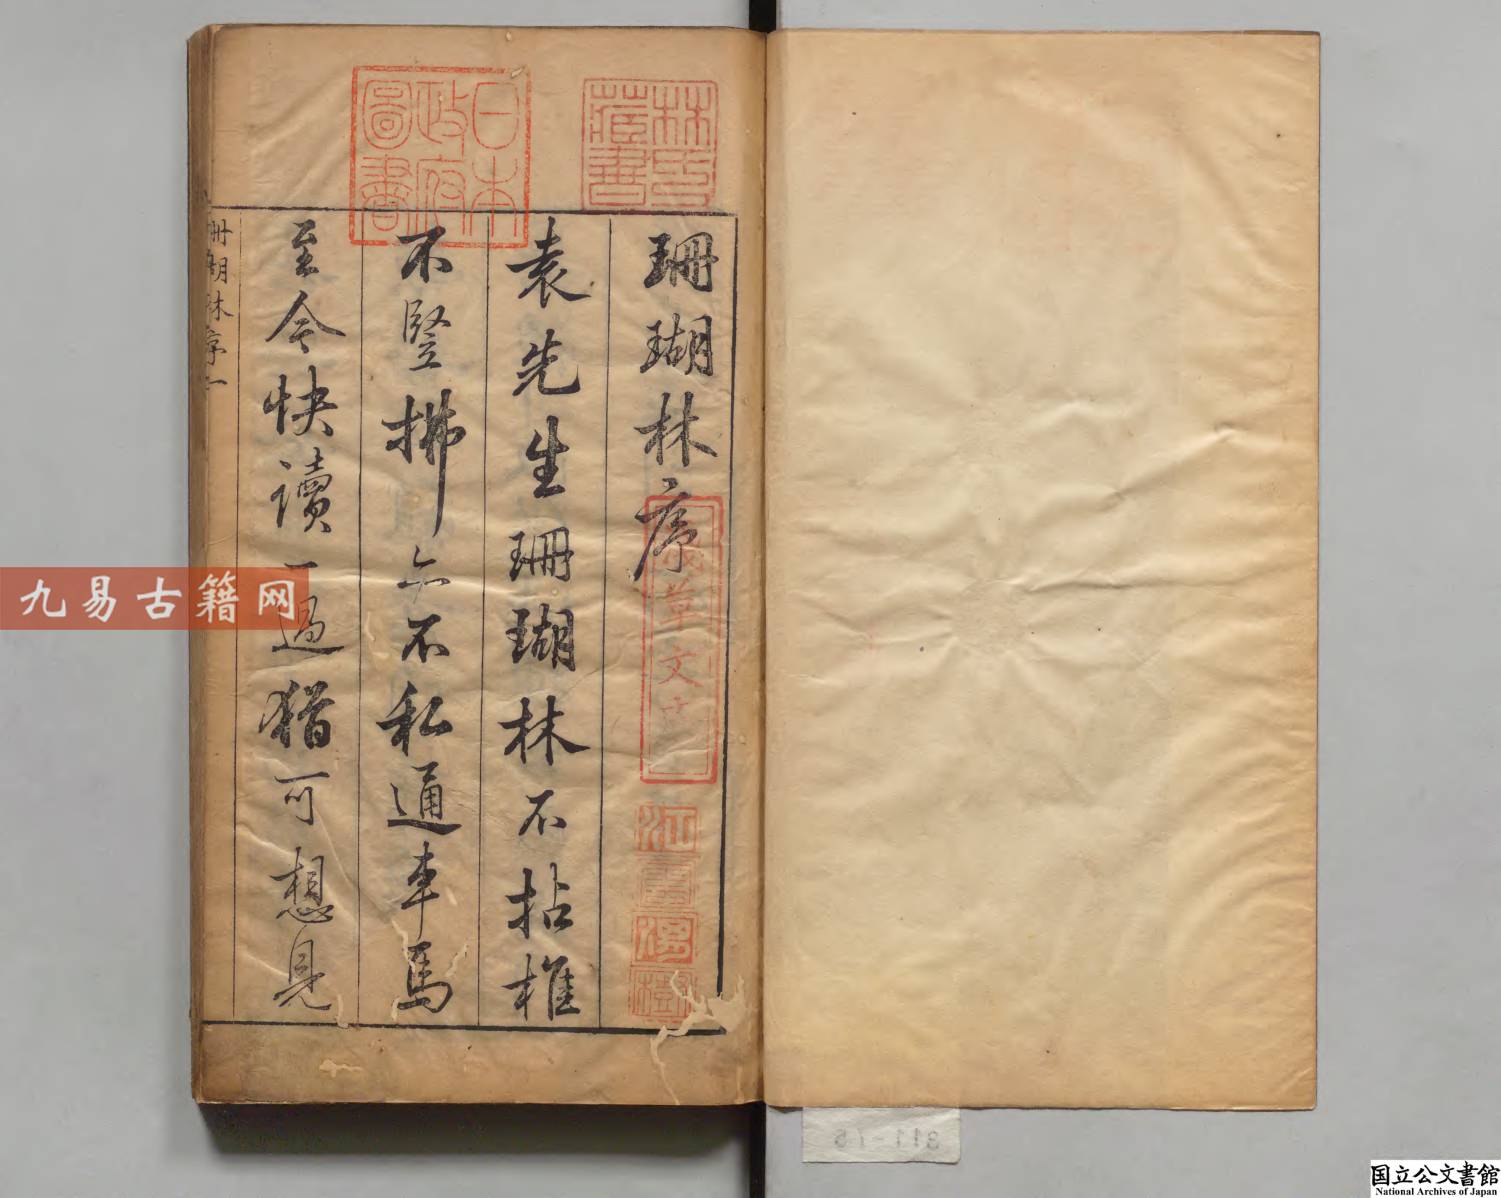 珊瑚林序
袁先生珊瑚林不拈椎
不豎拂亦不私通車馬
至今快讀一過猶可想見
珊瑚林序一
林氏藏書
日本政府圖書
淺草文庫
江雲渭樹
九易古籍网
国立公文書館
National Archives of Japan